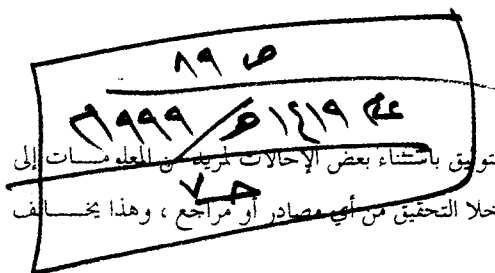 ص ٨٩
عام ١٤١٩ هـ / ١٩٩٩ م
توثيق باستثناء بعض الإحالات لمزيد من المعلومات إلى
ج ٧
خلا التحقيق من أي مصادر أو مراجع ، وهذا يخالف